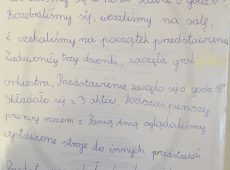 Rozebraliśmy się, weszliśmy na salę
i czekaliśmy na początek przedstawienia
Zadzwoniły trzy dzwonki, zaczęła grać
orkiestra. Przedstawienie zaczęło się o godz. 18
Składało się z 3 aktów. Podczas pierwszej
przerwy razem z Panią oglądaliśmy
wystawione stroje do innych przedstawień